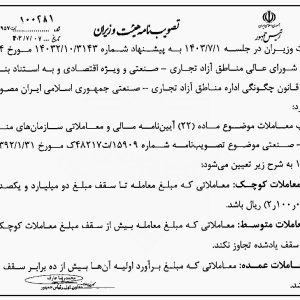 ۱۰۰۲۸۱
تصویب‌نامه هیئت وزیران
وزیران در جلسه ۱۴۰۳/۷/۱ به پیشنهاد شماره ۱۴۰۳۲/۱۰/۳۱۴۳ مورخ
شورای عالی مناطق آزاد تجاری – صنعتی و ویژه اقتصادی و به استناد
قانون چگونگی اداره مناطق آزاد تجاری – صنعتی جمهوری اسلامی ایران
معاملات موضوع ماده (۲۲) آیین‌نامه مالی و معاملاتی سازمان‌های
– صنعتی موضوع تصویب‌نامه شماره ۱۵۹۰۹/ت۴۸۲۱۷ک مورخ ۱۳۹۲/۱/۳۱
به شرح زیر تعیین می‌شود:
معاملات کوچک: معاملاتی که مبلغ معامله تا سقف مبلغ دو میلیارد و یکصد
ریال باشد.
معاملات متوسط: معاملاتی که مبلغ معامله بیش از سقف مبلغ معاملات کوچک
سقف یادشده تجاوز نکند.
معاملات عمده: معاملاتی که مبلغ برآورد اولیه آن‌ها بیش از ده برابر سقف
محمدرضا عارف
معاون اول رئیس جمهور